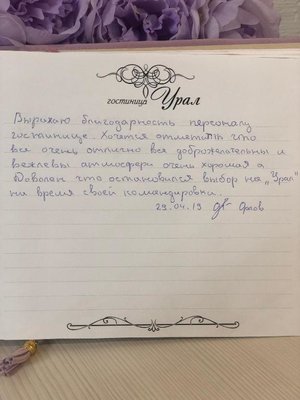 гостиница Урал
Выражаю благодарность персоналу
гостинице. Хочется отметить что
все очень отлично все доброжелательны и
вежлевы атмосфера очень хорошая
Доволен что остановился выбор на "Урал"
на время своей командировки.
29.04.19 Орлов